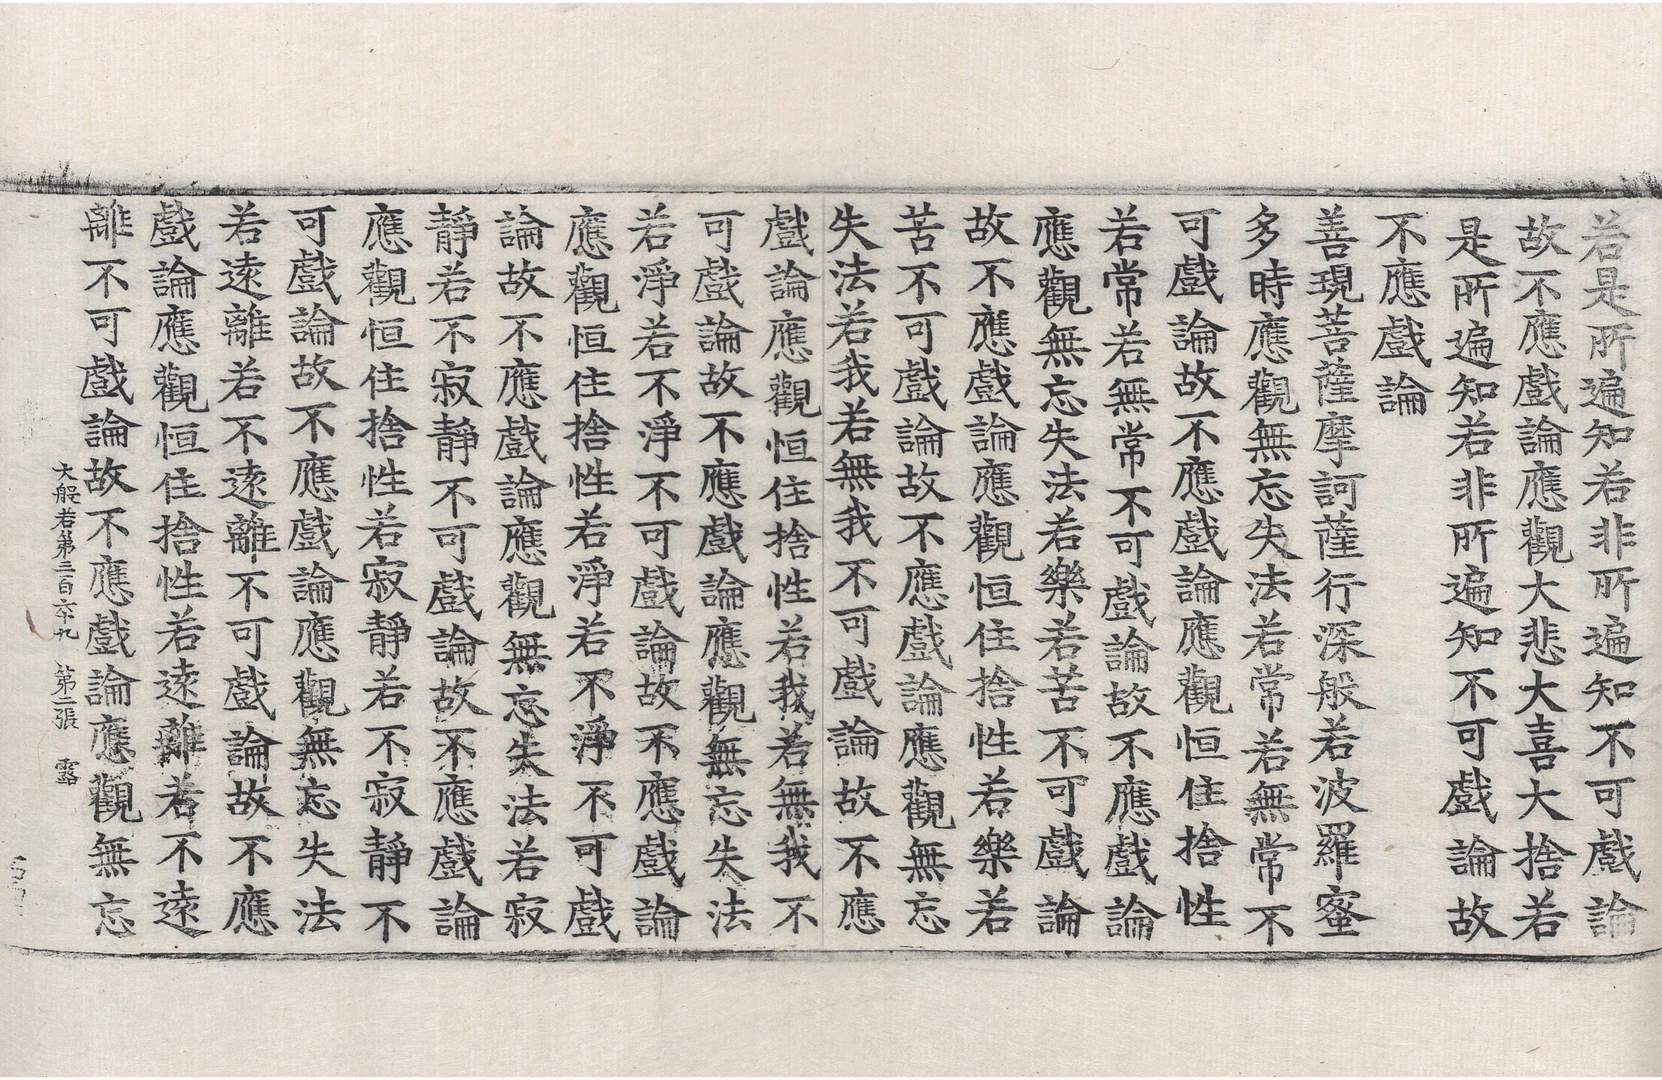 若是所遍知若非所遍知不可戲論
故不應戲論應觀大悲大喜大捨若
是所遍知若非所遍知不可戲論故
不應戲論
善現菩薩摩訶薩行深般若波羅蜜
多時應觀無忘失法若常若無常不
可戲論故不應戲論應觀恒住捨性
若常若無常不可戲論故不應戲論
應觀無忘失法若樂若苦不可戲論
故不應戲論應觀恒住捨性若樂若
苦不可戲論故不應戲論應觀無忘
失法若我若無我不可戲論故不應
戲論應觀恒住捨性若我若無我不
可戲論故不應戲論應觀無忘失法
若淨若不淨不可戲論故不應戲論
應觀恒住捨性若淨若不淨不可戲
論故不應戲論應觀無忘失法若寂
靜若不寂靜不可戲論故不應戲論
應觀恒住捨性若寂靜若不寂靜不
可戲論故不應戲論應觀無忘失法
若遠離若不遠離不可戲論故不應
戲論應觀恒住捨性若遠離若不遠
離不可戲論故不應戲論應觀無忘
大般若第三百六十九 第二張 露